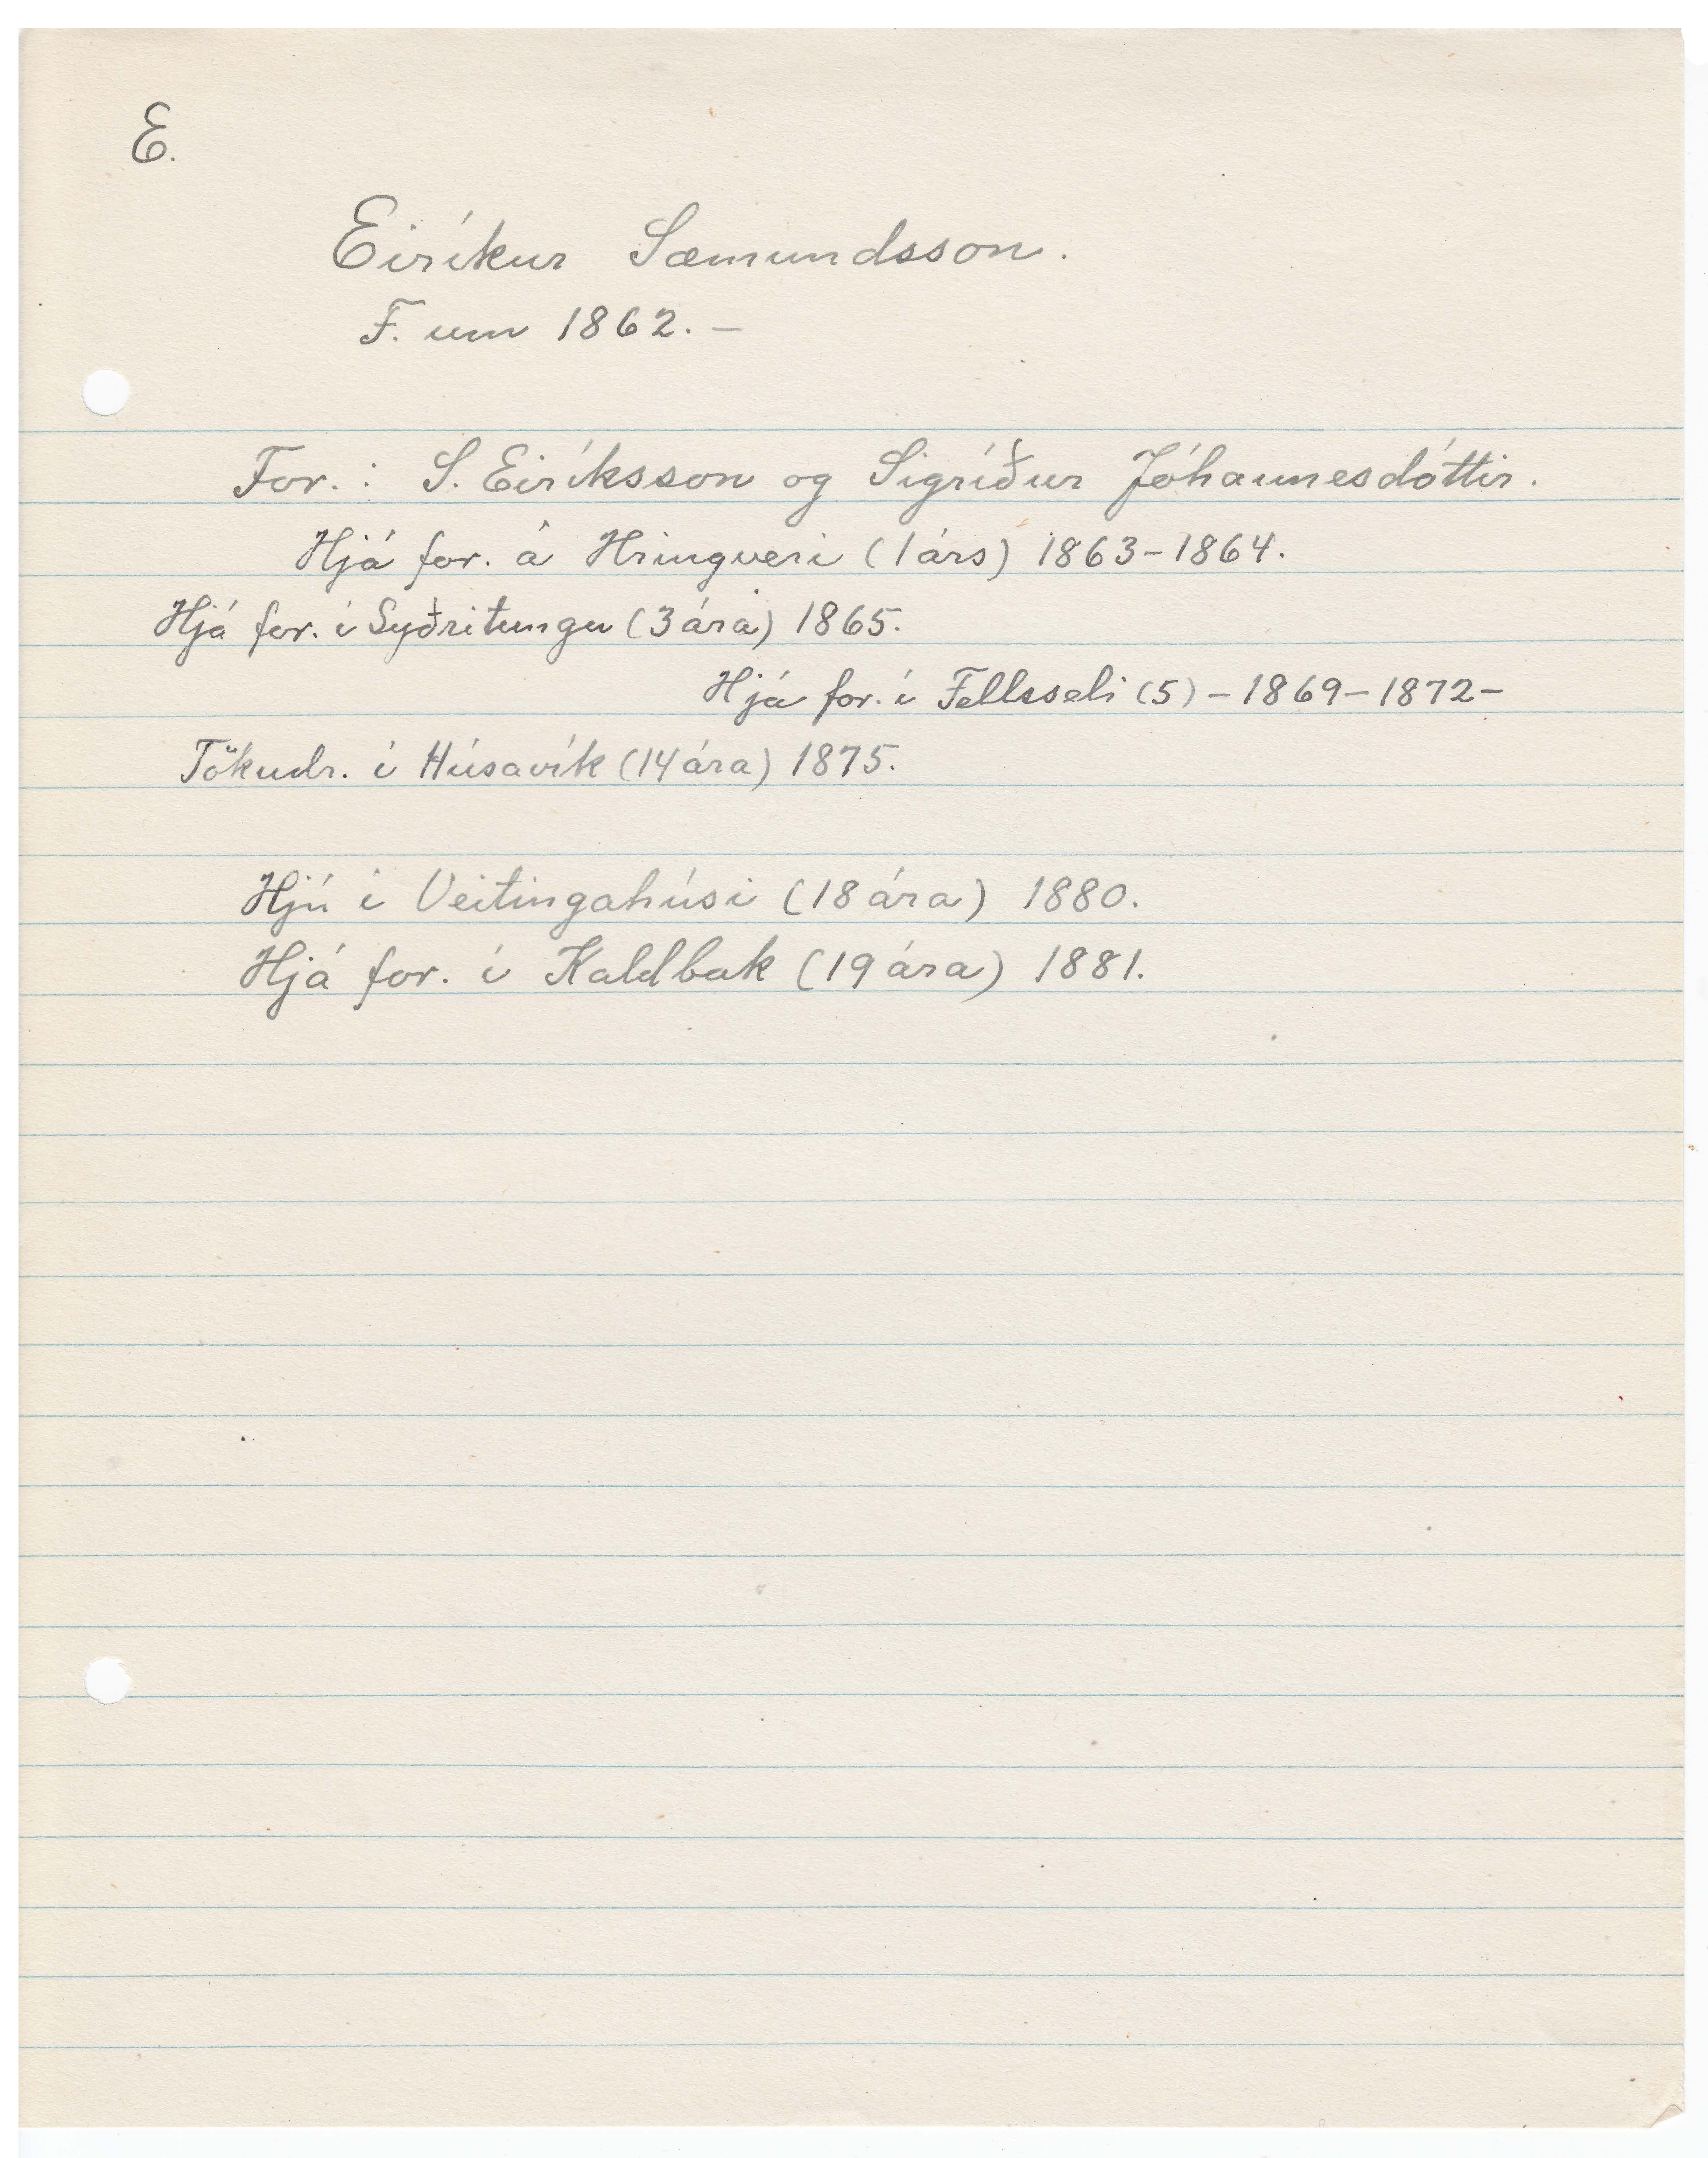 E.
Eiríkur Sæmundsson.
F. um 1862. –
For.: S. Eiríksson og Sigríður Jóhannesdóttir.
Hjá for. á Hringveri (1 árs) 1863–1864.
Hjá for. í Syðritungu (3 ára) 1865.
Hjá for. í Fellsseli (5) – 1869 – 1872 –
Tökudr. í Húsavík (14 ára) 1875.
Hjú í Veitingahúsi (18 ára) 1880.
Hjá for. í Kaldbak (19 ára) 1881.